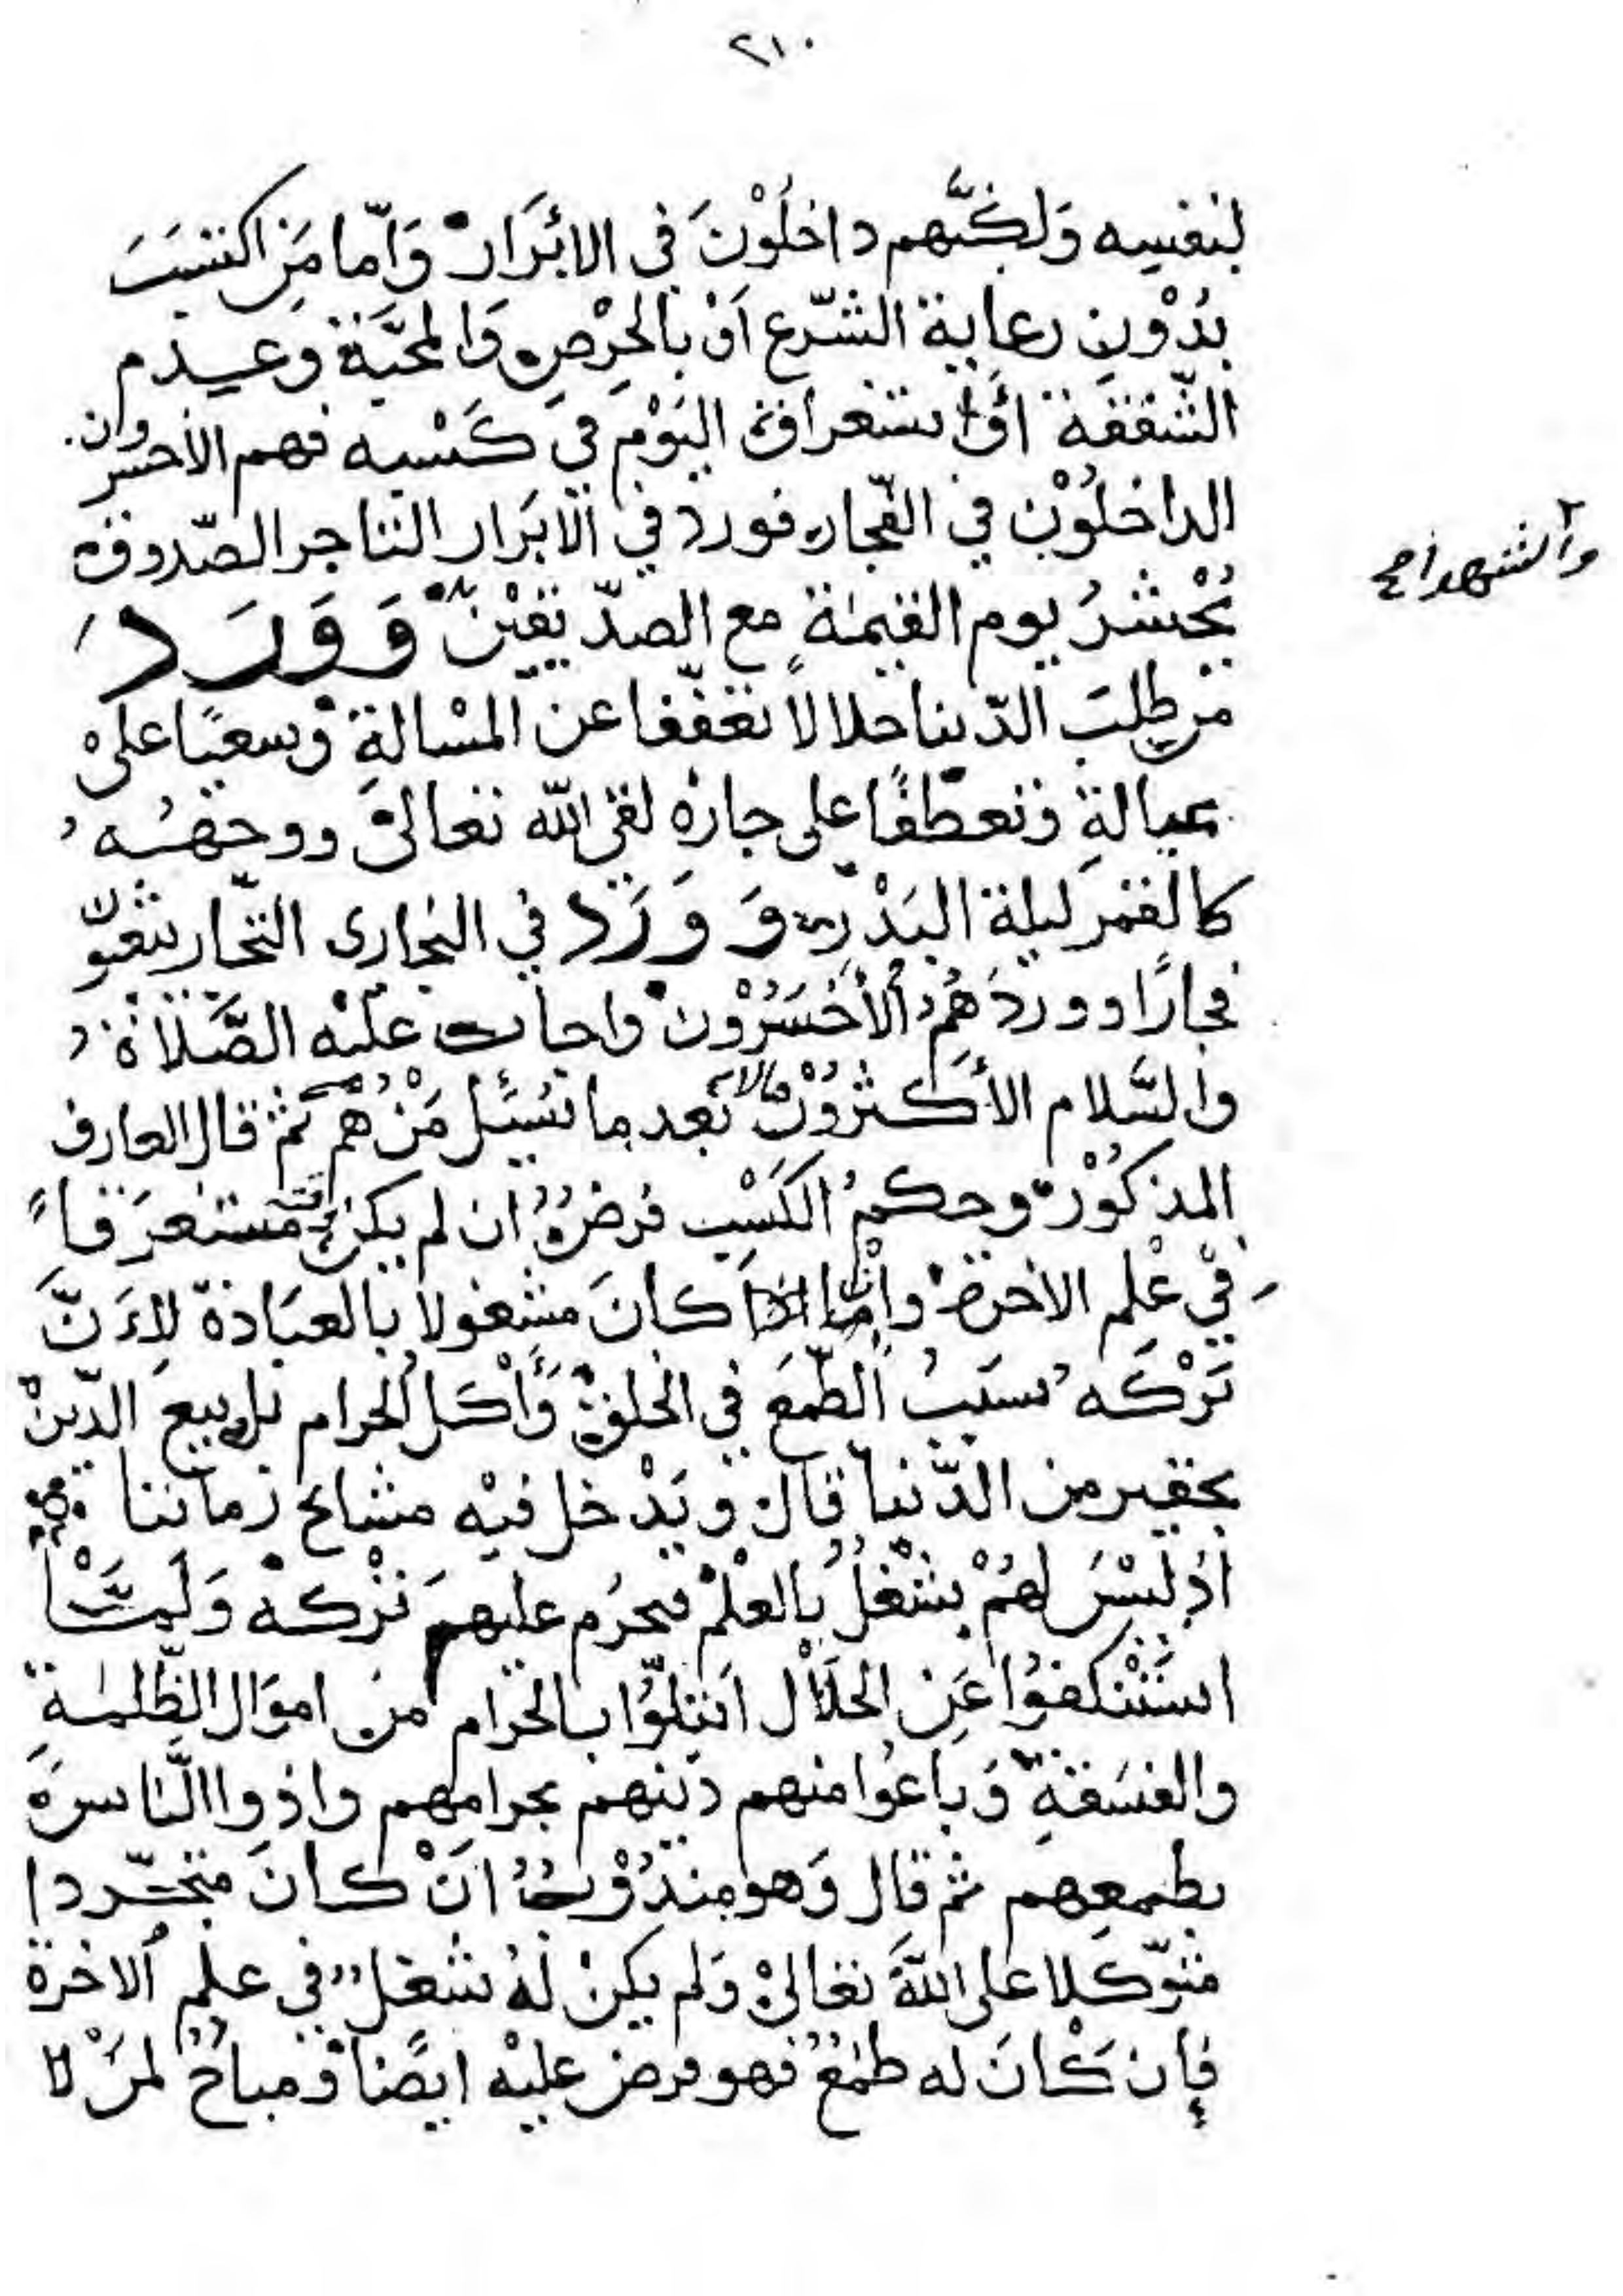 ٢١٠
لنفسه وَلكنَّهم داخلُوْنَ في الابْرَارْ وَامّا مَنِ اكتسَبَ
بدُوْنِ رعاية الشّرع اَوْ بالحِرْصِ وَالمحَبَّة وَعدم
الشّفقة اَوْ استغراق اليَوْم في كَسْبِه فهم الأخسرون
الداخلُوْن في الفُجّار فورد في الأبرَار التاجر الصّدوق
يُحْشرُ يوم القيٰمة مع الصدّيقيْن وَوَرَدَ
من طلبَ الدّنيا حلالاً تعفّفا عن المسْالةِ وَسعيًا علىْ
عيالهِ وَتعطّفًا على جارهْ لقى اللّه تعالىْ ووجههُ
كالقمر ليلة البَدْر وَوَرَدَ في البخارى التجّار يبعثون
فجارًا وورد هُمُ الأخسَرُوْن واجاب عليْه الصَّلاةُ
والسَّلام الأكثرُوْنَ مالا بعد ما سُئل مَنْ هُمْ ثُمّ قال العارف
المذكُوْر وحكمُ الكَسْب فرضٌ ان لم يكن مستغرَقاً
في عْلم الاخرة وامّا اذا كانَ مشغولا بالعبَادة لِاَنَّ
تَرْكَه سبَبُ الطّمَعَ في الخلقْ وَأَكلُ الحرام بل بيع الدّيْن
بحقير من الدّنيا قال ويَدْخل فيْه مشائخ زماننا
اذ ليْسَ لهُمْ شْغلُ بالعلْمْ فيحرُم عليهمَ تْركهْ وَلمَّا
استَنْكفُوْا عَنِ الحلَاْل ابتلُوّا بالحرام من اموَال الظّلمة
والفسَقةِ وَباعُوا منهم دينهم بحرامهم واذوا النَّاسَ
بطمعِهم ثم قال وَهو مندُوْبٌ انْ كانَ متجرّدا
متوّكلا على اللّهَ تعالىْ وَلم يكنْ لَهُ شغلٌ في علم الاخرة
فإن كَانَ له طمعٌ فهو فرض عليْه ايضًا وَمباحٌ لمنْ لا
والشهداء صح